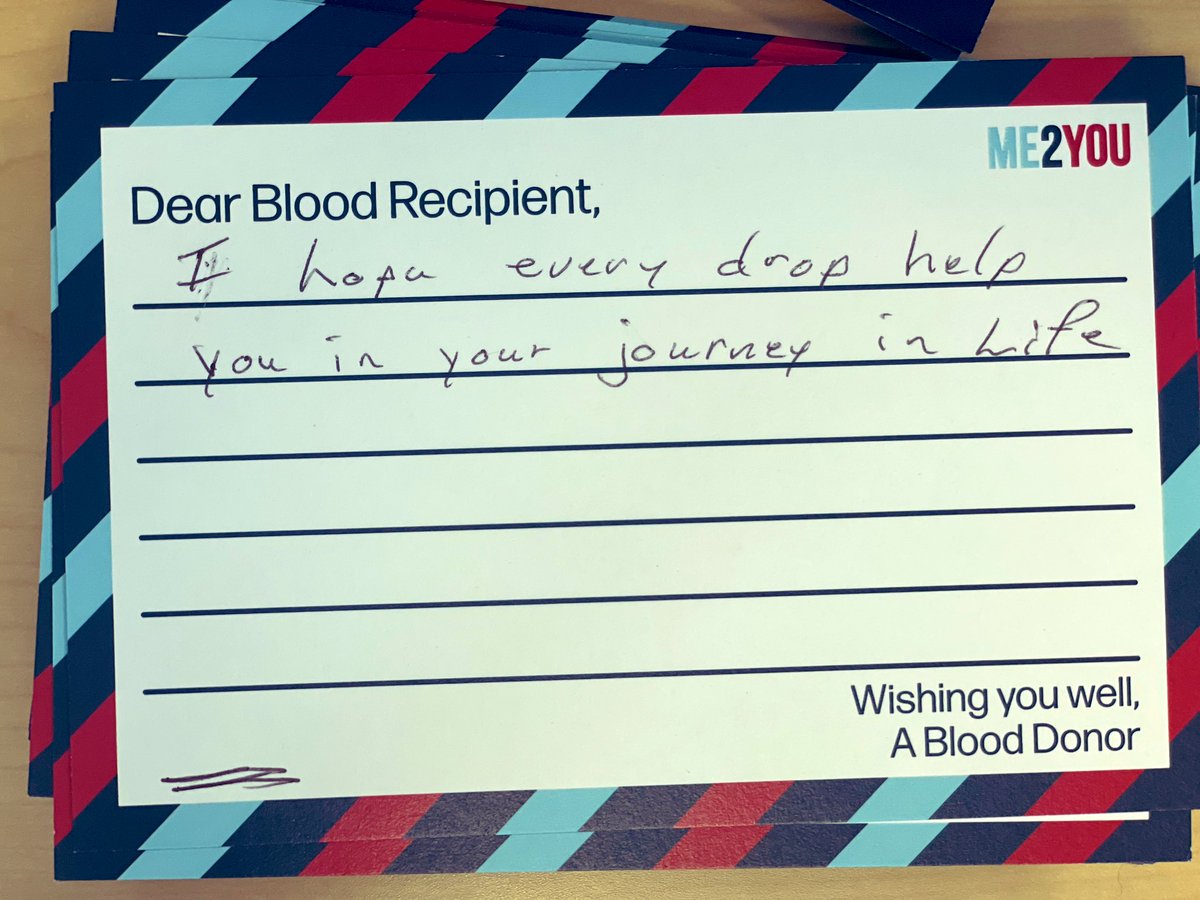 ME2YOU
Dear Blood Recipient,
I hope every drop help
you in your journey in Life
Wishing you well,
A Blood Donor